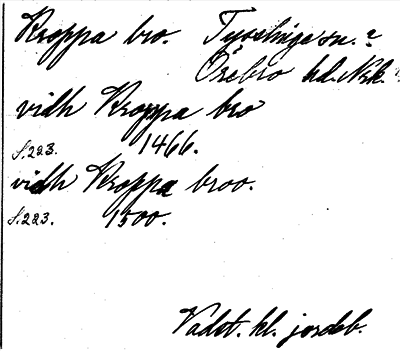 Kroppa bro. Tysslinge sn.?
Örebro hd. Nrk.?
vidh Kroppa bro
s. 223. 1466.
vidh Kroppa broo.
s. 223. 1500.
Vadst. kl. jordeb.